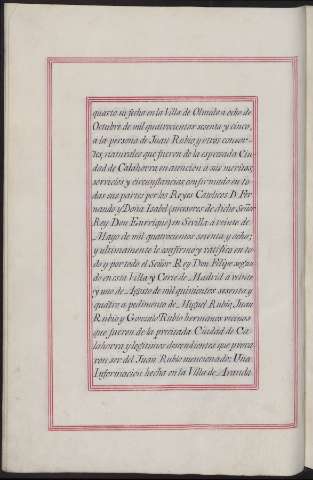 quarto su fecha en la Villa de Olmedo a ocho de
Octubre de mil quatrocientos sesenta y cinco,
a la persona de Juan Rubio y otros consor-
tes, naturales que fueron de la expresada Ciu
dad de Calahorra en atencion à sus meritos,
servicios y circunstancias, confirmado en to
das sus partes por los Reyes Catolicos D. Fer-
nando y Doña Isabel (sucesores de dicho Señor
Rey Don Enrrique) en Sevilla à veinte de
Mayo de mil quatrocientos setenta y ocho;
y ultimamente le confirmo y ratifica en to
do y por todo el Señor Rey Don Felipe segun
do en esta Villa y Corte de Madrid a veinte
y uno de Agosto de mil quinientos sesenta y
quatro a pedimento de Miguel Rubio, Juan
Rubio y Gonzalo Rubio hermanos vecinos
que fueron de la precitada Ciudad de Ca-
lahorra y legitimos descendientes que prova
ron ser del Juan Rubio mencionado; Una
Informacion hecha en la Villa de Aranda